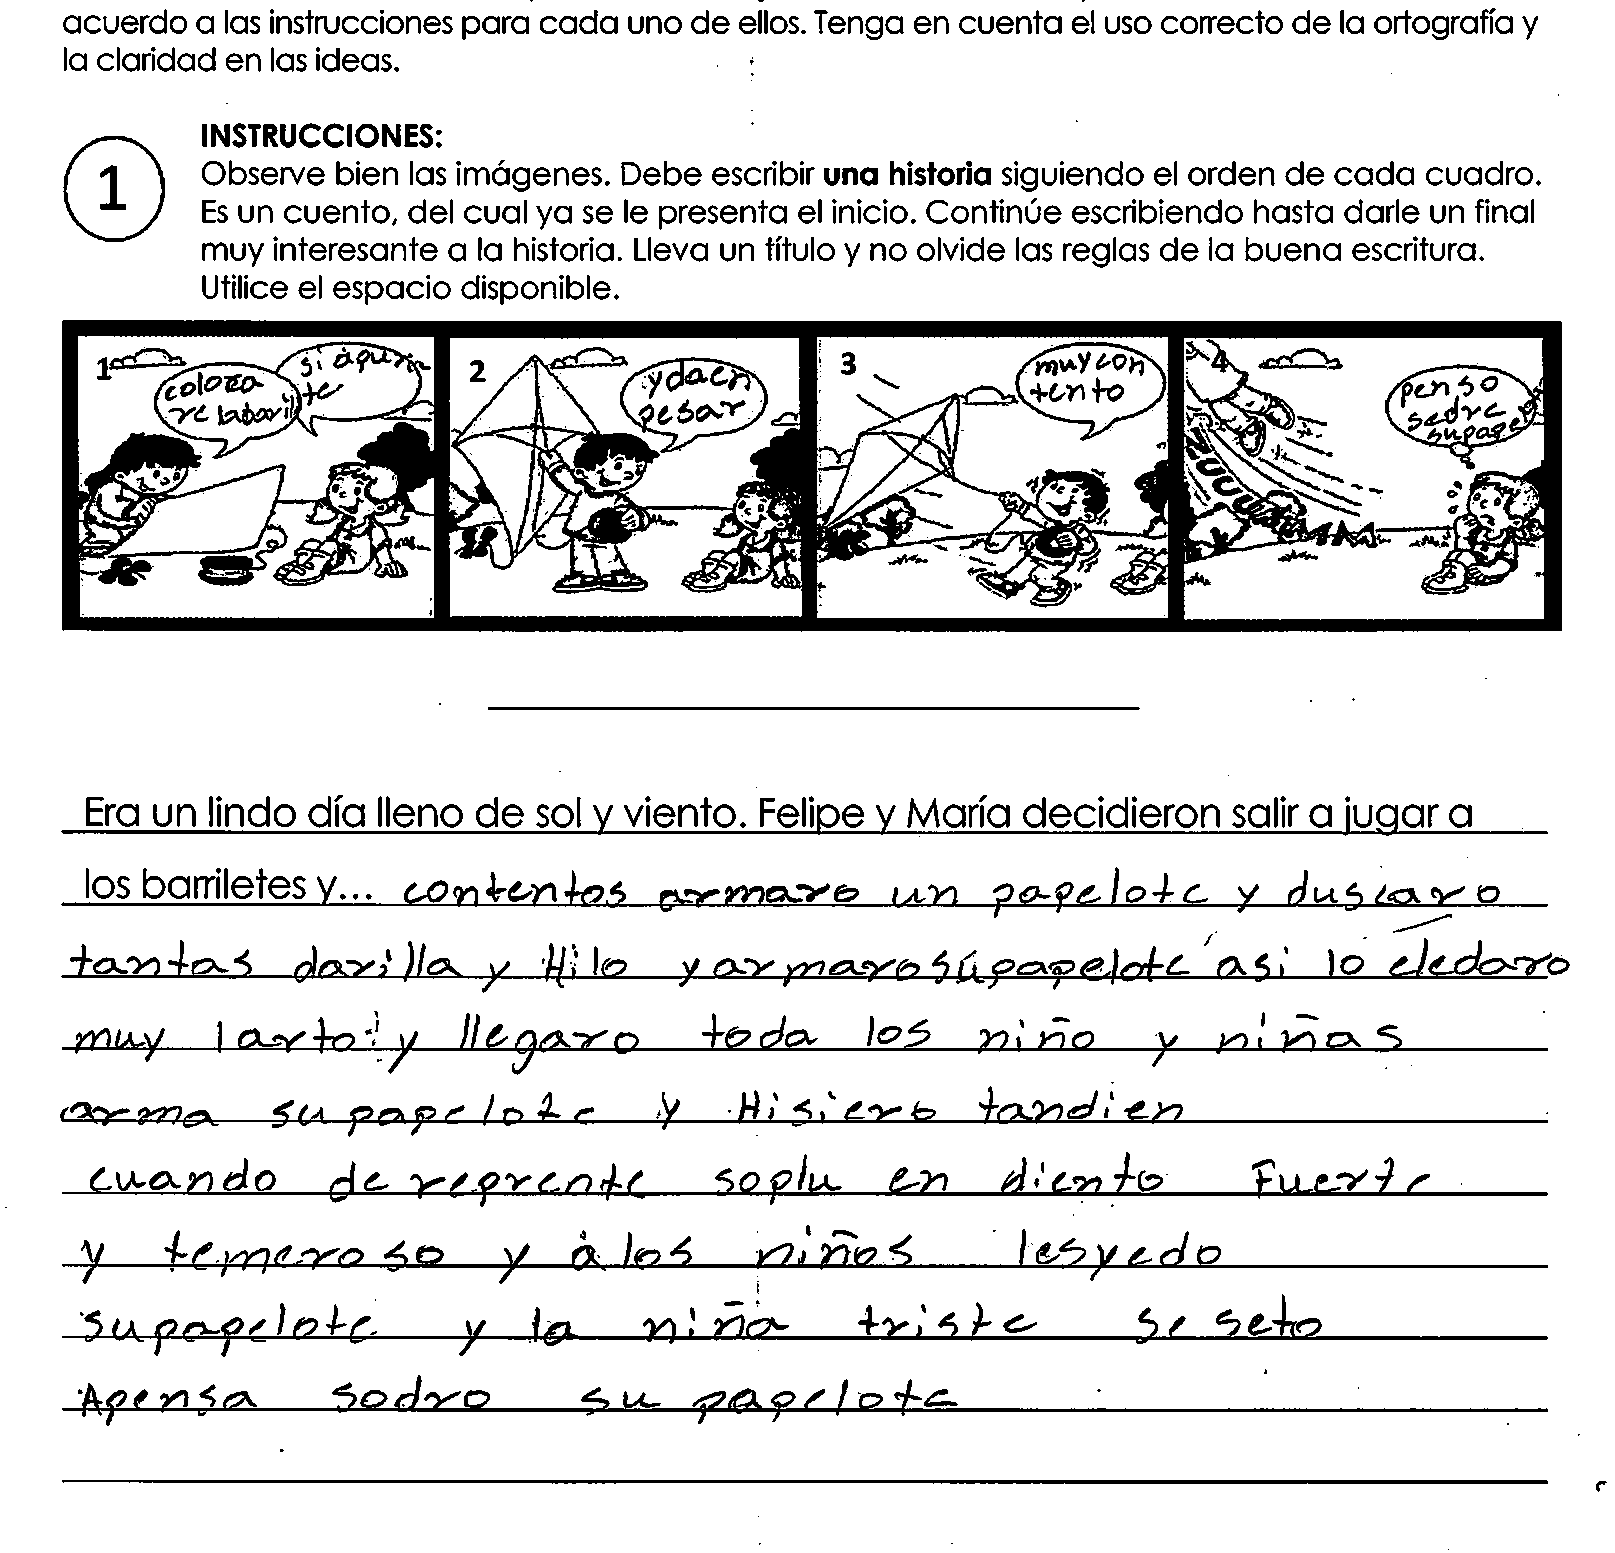 acuerdo a las instrucciones para cada uno de ellos. Tenga en cuenta el uso correcto de la ortografía y
la claridad en las ideas.
1
INSTRUCCIONES:
Observe bien las imágenes. Debe escribir una historia siguiendo el orden de cada cuadro.
Es un cuento, del cual ya se le presenta el inicio. Continúe escribiendo hasta darle un final
muy interesante a la historia. Lleva un título y no olvide las reglas de la buena escritura.
Utilice el espacio disponible.
1
coloza
re labari
si apura
te
2
y da en
pesar
3
muy con
tento
4
ZUUUUMMM
penso
sodre
su papel
Era un lindo día lleno de sol y viento. Felipe y María decidieron salir a jugar a
los barriletes y... contentos armaro un papelote y duscaro
tantas darilla y Hilo y armaro sú papelote asi lo eledaro
muy larto y llegaro toda los niño y niñas
arma su papelote y Hisiero tandien
cuando de reprente soplu en diento Fuerte
y temeroso y a los niños lesyedo
su papelote y la niña triste se seto
Apensa sodro su papelote